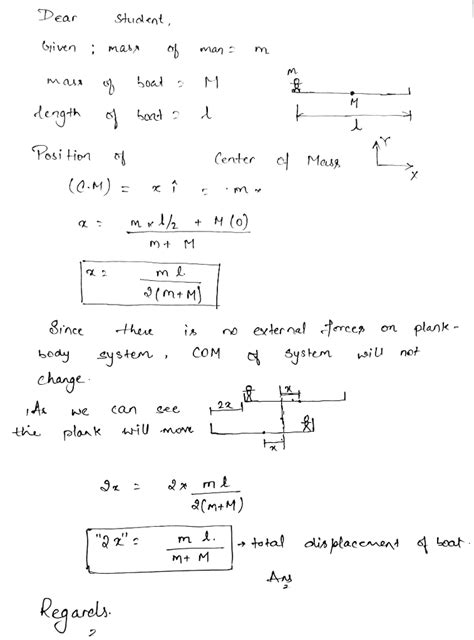 Dear Student,
Given : mass of man = m
mass of boat = M
length of boat = l
m
M
l
Position of Center of Mass
Y
X
(C.M) = x î = m
x = m × l/2 + M(0)
m + M
x = m l
2(m+M)
Since there is no external forces on plank-
body system, COM of system will not
change.
As we can see
the plank will move
2x
x
x
2x = 2× m l
2(m+M)
"2x" = m l.
m + M
→ total displacement of boat.
Ans
Regards.